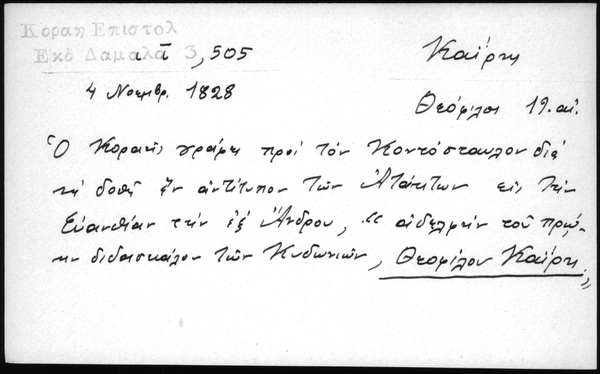 Κοραη Επιστολ Καΐρης
Εκδ Δαμαλα 3, 505
4 Νοεμβρ. 1828
Θεόφιλος 19. αἰ.
Ὁ Κοραῆς γράφει πρὸς τὸν Κοντόσταυλον διὰ
νὰ δοθῇ ἓν ἀντίτυπον τῶν Ἀτάκτων εἰς τὴν
Εὐανθίαν τὴν ἐξ Ἄνδρου, ἀδελφὴν τοῦ πρώ-
ην διδασκάλου τῶν Κυδωνιῶν, Θεοφίλου Καΐρη